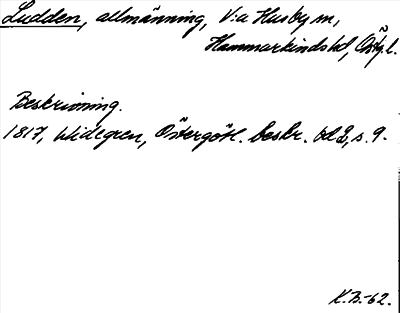 Ludden, allmänning, V:a Husby sn,
Hammarkinds hd, Östg.l.
Beskrivning.
1817, Widegren, Östergötl. beskr. bd 2, s. 9.
K.B.-62.